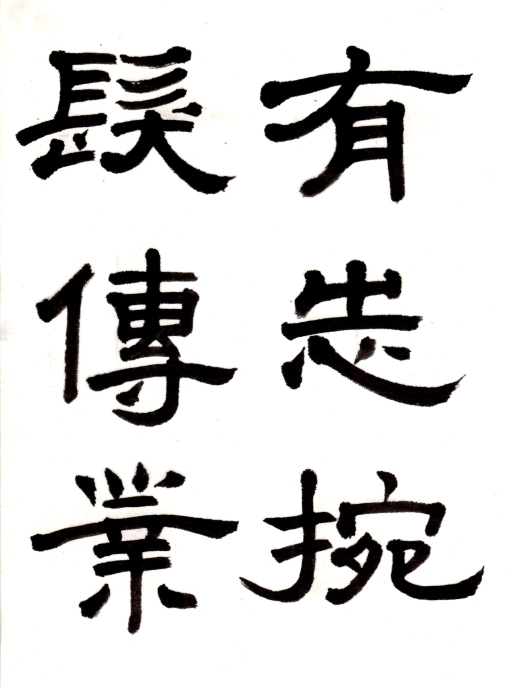 有志捥
髮傳業